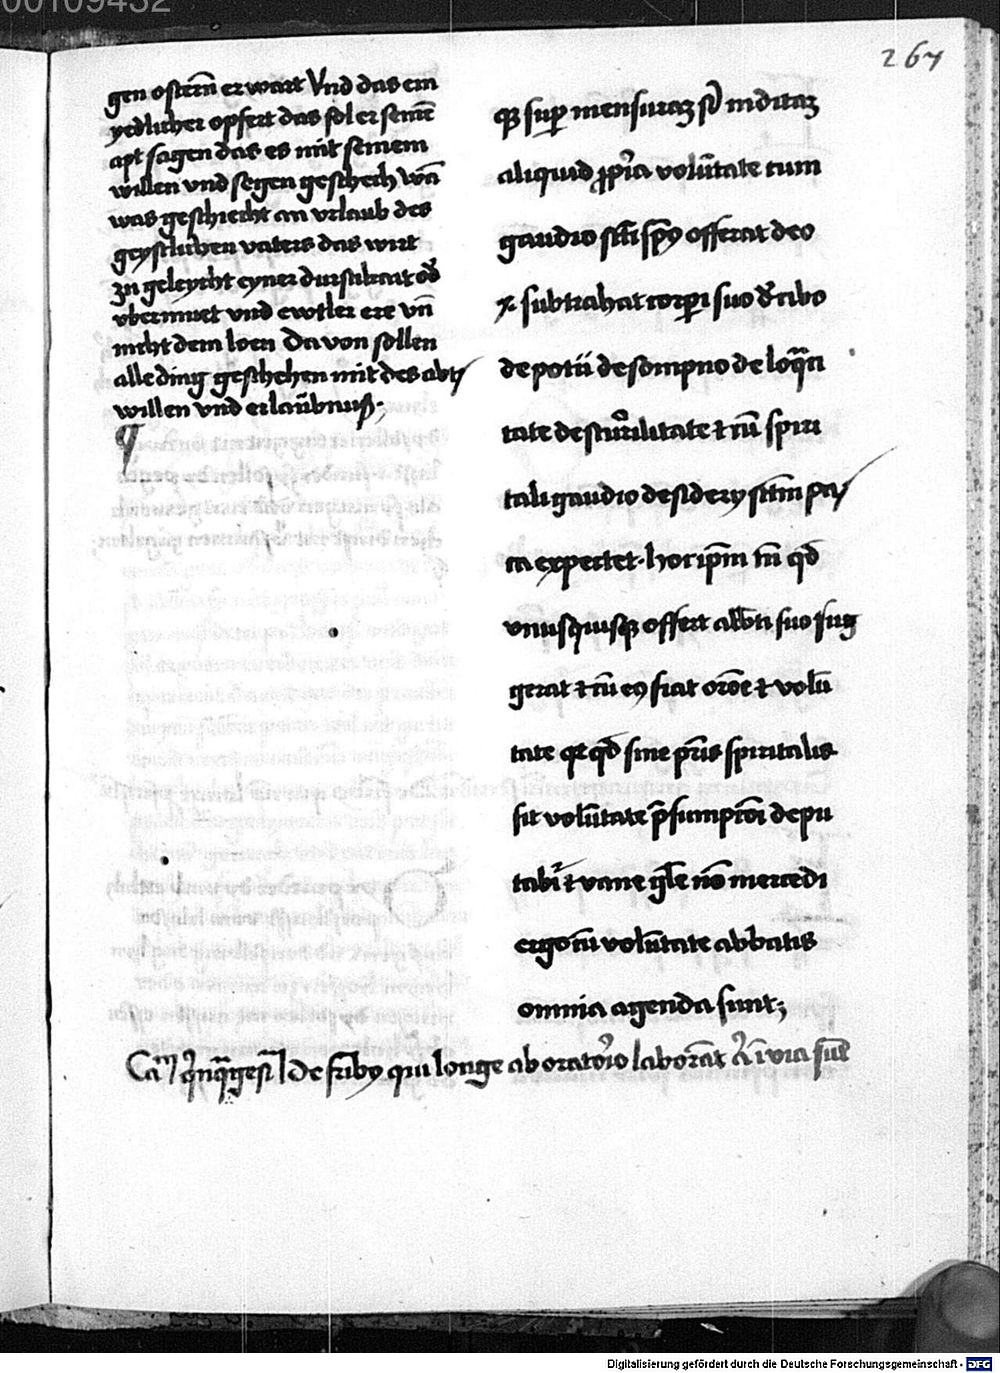 00109432
267
gen osterñ erwart Vnd das ein
yedlicher opfert das sol er seinē
apt sagen das es mit seinem
willen vnd segen geschech wañ
was geschiecht an vrlaub des
geystlichen vaters das wirt
zu geleycht eyner durstikait od̄
vbermuet vnd eytler ere vn̄
nicht dem loen Da von sollen
alle ding geschehen mit des abts
willen vnd erlaŭbnuß;
ꝙ suꝑ mensuraꝫ sˡ inditaꝫ
aliquid ꝓpˡa volūtate cum
gaudio scī spˢ offerat deo
subtrahat corꝑi suo de cibo
de potu de sompno de loqͣci
tate de scurˡilitate ⁊ cū spiri
tali gaudio desidery scām pas
ca expectet. hoc ipm̄ tn̄ qd̄
vnusqͥusqꝫ offert abb̄ti suo sug
gerat ⁊ cū eiꝰ fiat orōe ⁊ volū
tate qꝛ qd̄ sine pr̄is spiritalis
fit volūtate p̄sumpcōi depu
tabiˡ ⁊ vane gl̄e nō mercedi
ergo cū volūtate abbatis
omnia agenda sunt;
Caᵐ qͥnqͣgesiᵐ De frībꝰ qui longe ab oratorio laborāt aͭ ī via sūt
Digitalisierung gefördert durch die Deutsche Forschungsgemeinschaft - DFG